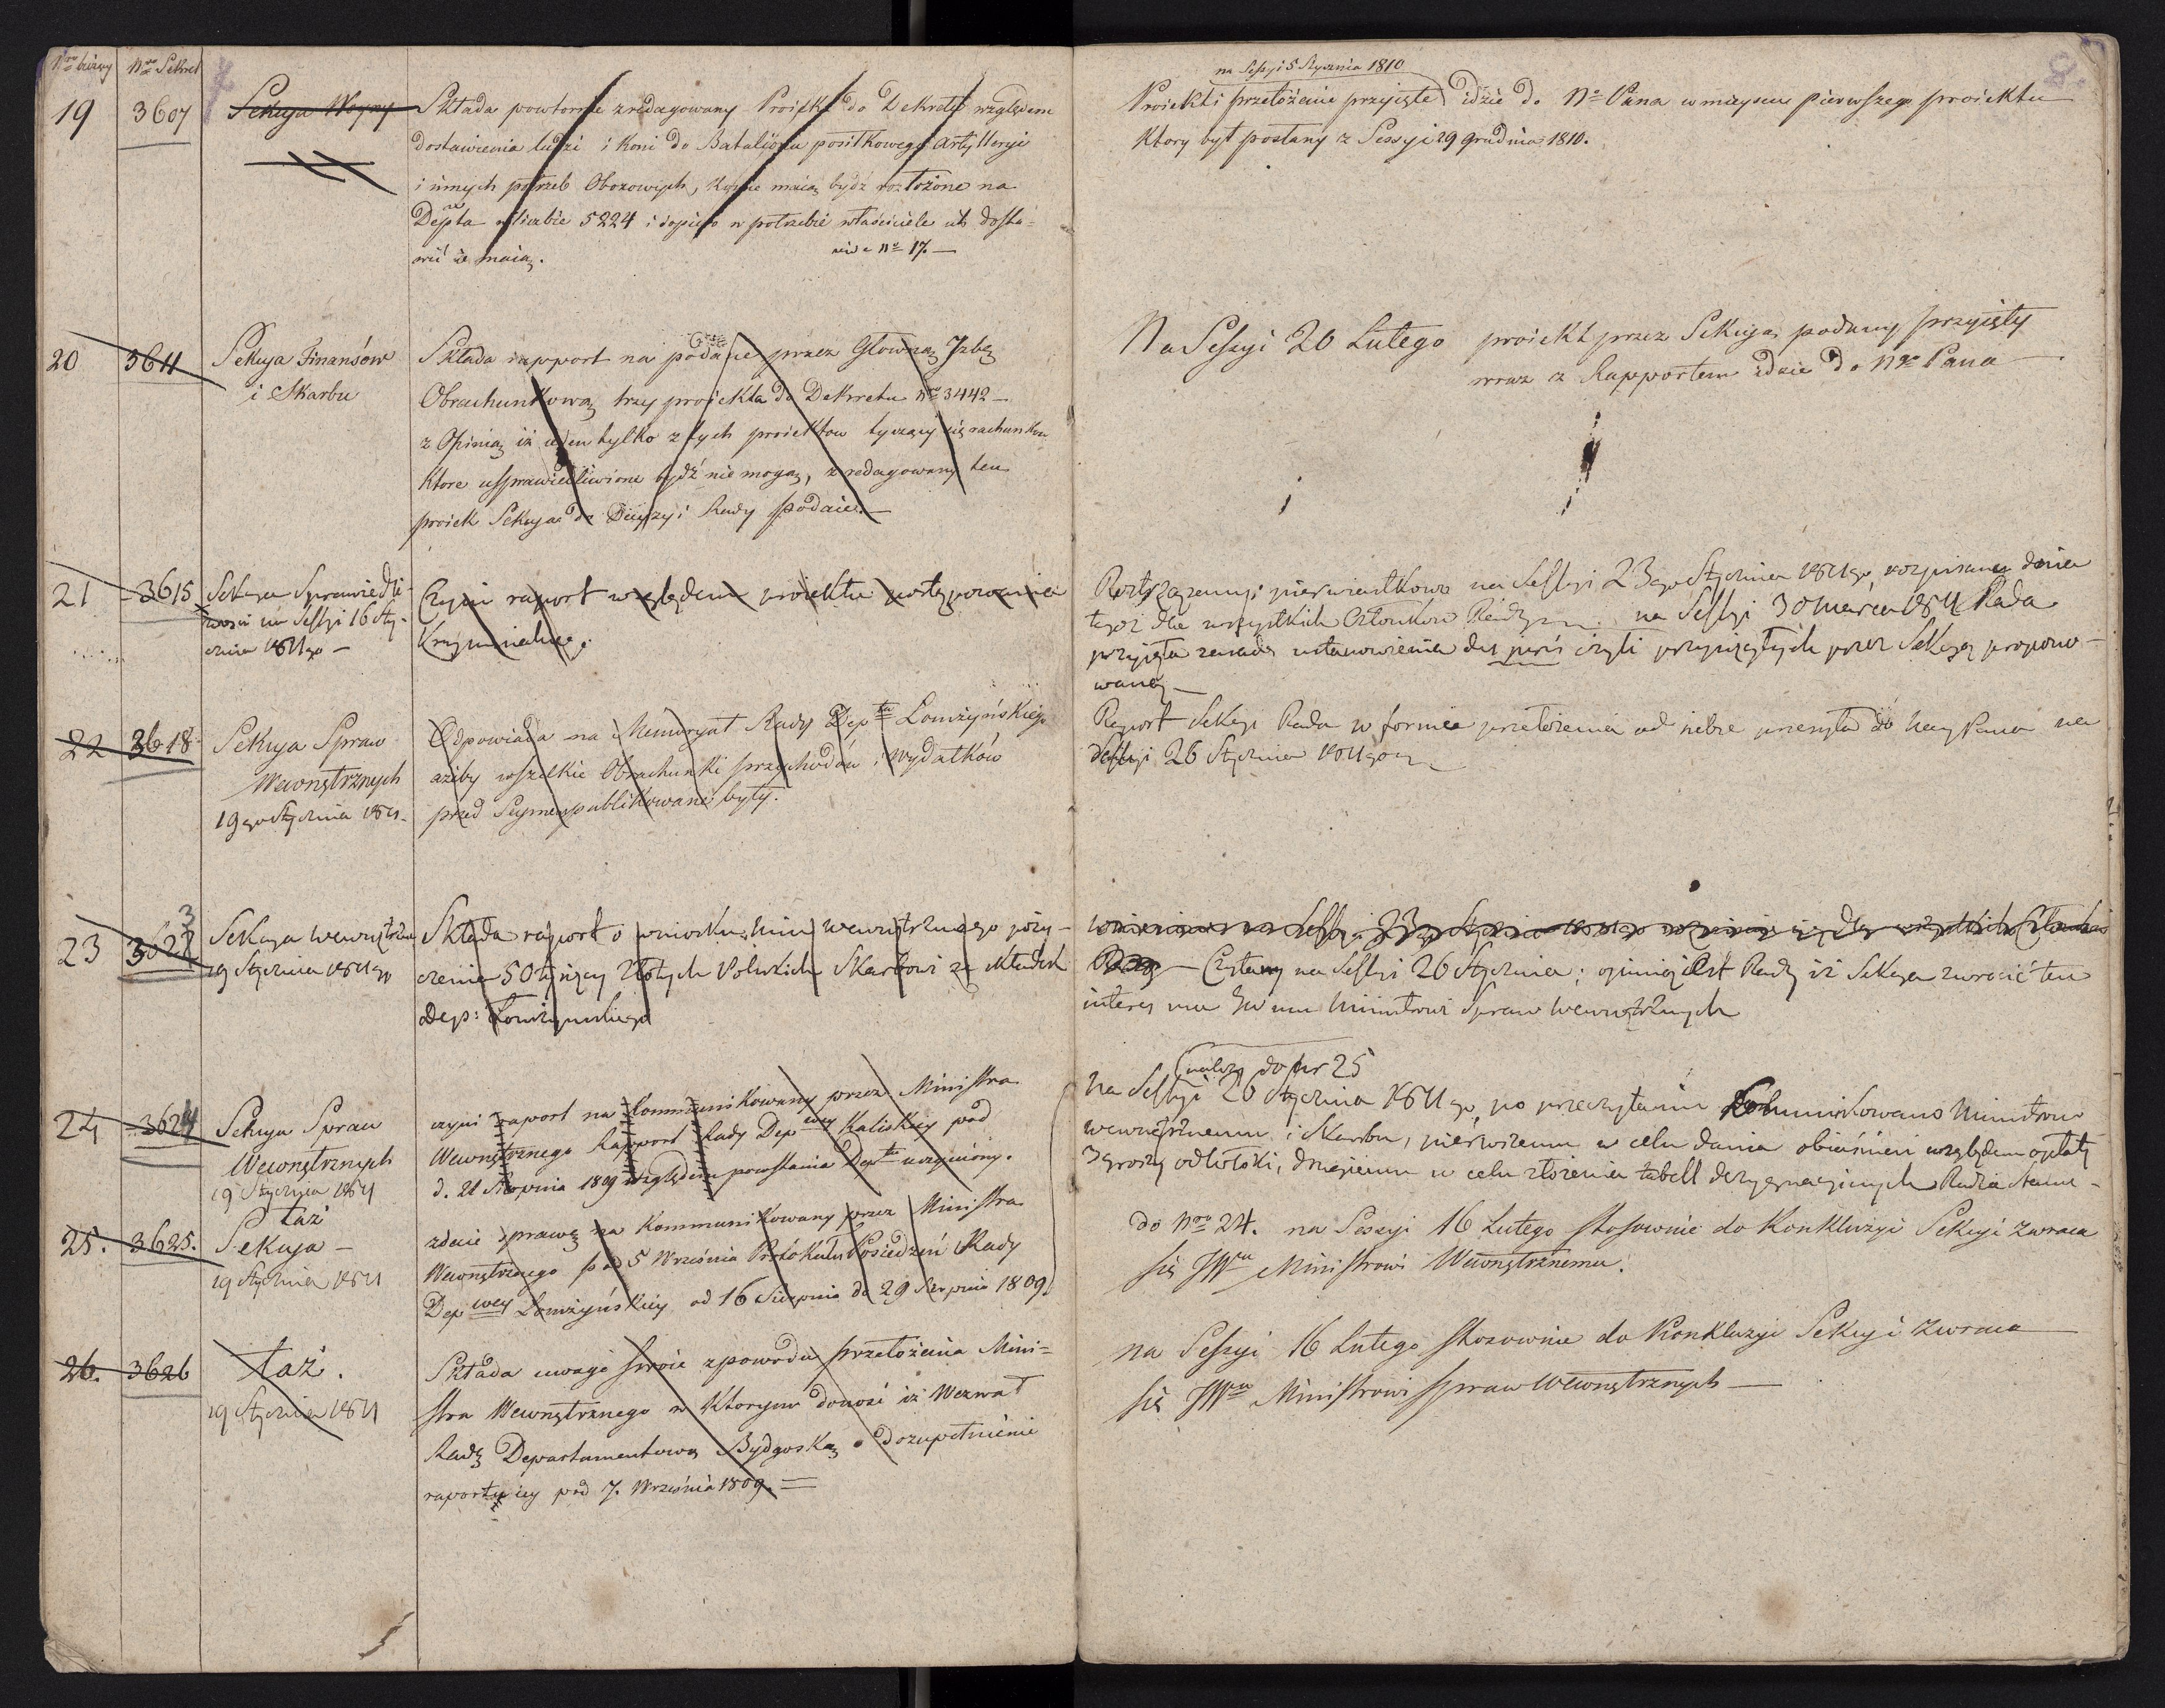 Nro bieżący Nro Sekret
19 3607 Sekcya Woyny
Składa powtornie zredagowany Proiekt do Dekretu względem
dostawienia ludzi i koni do Batalijonu posiłkowego Artylleryi
i innych potrzeb Obozowych, Konie maią bydź rozłożone na
Depta w liczbie 5224 i dopiero w potrzebie właściciele ich dosta=
wić ie maią. vide No 17.
na Sessyi 5 Stycznia 1810
Proiekt i przełożenie przyięte idzie do No Pana w mieysce pierwszego proiektu
ktory był posłany z Sessyi 29 grudnia 1810.
20 3611 Sekcya Finansów
i Skarbu
Składa rapport na podane przez Główną Izbę
Obrachunkową trzy proiekta do Dekretu No 3442 —
z Opinią iż ieden tylko z tych proiektow tyczący się rachunkow
ktore usprawiedliwione bydź nie mogą, zredagowany ten
proiek Sekcya do Decyzyi Rady podaie. —
Na Sessyi 20 Lutego proiekt przez Sekcyą podany przyięty
wraz z Rapportem idzie do Ngo Pana —
21 3615 Sekcya Sprawiedli
wości na Sessyi 16 Sty-
cznia 1811go —
Czyni raport względem proiektu postępowania
Kryminalnego.
na Sessyi 23go Stycznia 1811go, rozpisana dnia
tegoż dla wszystkich Członkow Rady na Sessyi 30 Marca 1811 Rada
przyięła zasadę ustanowienia czyli przysięgłych przez Sekcyą propono-
waną —
22 3618 Sekcya Spraw
Wewnętrznych
19go Stycznia 1811.
Odpowiada na Memoryał Rady Depta Łomżyńskiego
ażiby wszelkie Obrachunki przychodów i wydatków
przed Seymem publikowane były.
Raport Sekcyi Rada w formie przełożenia od siebie przesyła do Nay Pana na
Sessyi 26 Stycznia 1811go
23 3623 Sekcya wewnętrzna
19 Stycznia 1811go
Składa raport o wniosku Min wewnętrznego poży-
czenia 50 tysięcy Złotych Polskich Skarbowi ze składek
Dep: Łomżyńskiego
Rady — Czytany na Sessyi 26 Stycznia; opinią iest Rady iż Sekcya zwrocić ten
interes ma JW mu Ministrowi Spraw Wewnętrznych
24 3624 Sekcya Spraw
Wewnętrznych
19 Stycznia 1811
czyni raport na kommunikowany przez Ministra
Wewnętrznego Rapport Rady Depwey Kaliskiey pod
d. 21 Sierpnia 1809 względem powstania Depta uczyniony.
należy do nr 25
na Sessyi 26 Stycznia 1811go, po przeczytaniu kommunikowano Ministrom
wewnętrznemu i Skarbu, pierwszemu w celu dania obiaśnień względem opłaty
3 groszy od włóki, drugiemu w celu złożenia tabell dezygnacyinych Radzie Stanu -
25. 3625. taż
Sekcya —
19 Stycznia 1811
zdaie sprawę na Kommunikowany przez Ministra
Wewnętrznego pod 5 Września Protokuł Posiedzeń Rady
Depwey Łomżyńskiey od 16 Sierpnia do 29 Sierpnia 1809.
do Nro 24. na Sessyi 16 Lutego stosownie do Konkluzyi Sekcyi zwraca
się JWu Ministrowi Wewnętrznemu.
26. 3626 taż.
19 Stycznia 1811
Składa uwagi swoie z powodu przełożenia Mini=
stra Wewnętrznego w Ktorym donosi iż Wezwał
Radę Departamentową Bydgoską o dozupełnienie
raportu iey pod 7. Września 1809. =
na Sessyi 16 Lutego stosownie do Konkluzyi Sekcyi zwraca
się JWu Ministrowi Spraw Wewnętrznych —